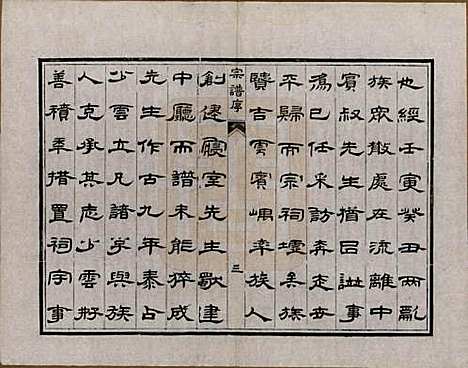 也經壬寅癸丑兩亂
族眾散處在流離中
賓叔先生猶目譜事
為己任采訪奔走世
平歸而宗祠墟矣族
牘吉雲賓嵎率族人
宗譜序
三
創建寢室先生歿建
中廳而譜未能猝成
先生作古九年泰占
少雲立凡諸弟與族
人克承其志少雲好
善積年措置祠宇事